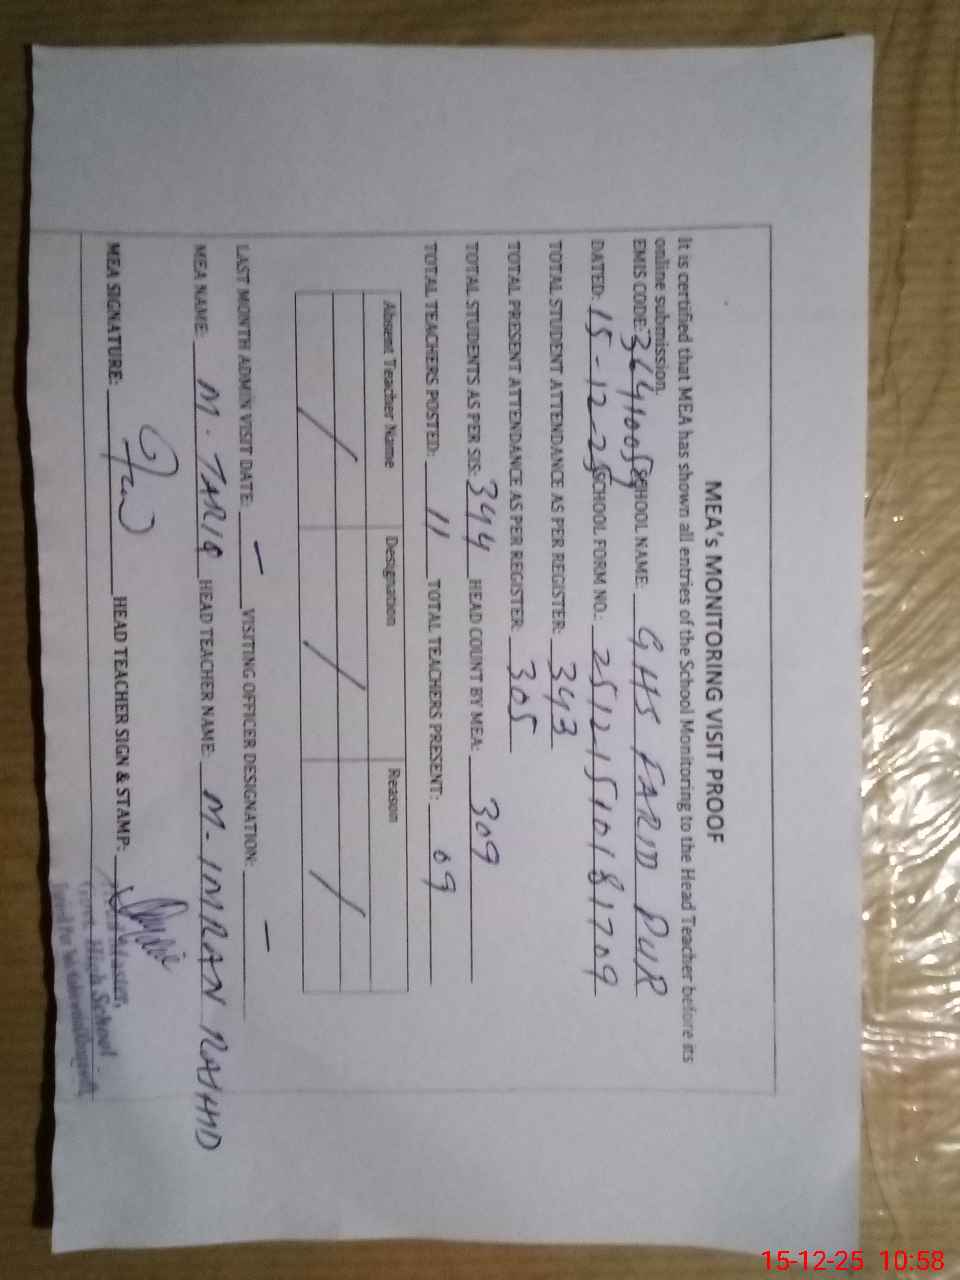 MEA's MONITORING VISIT PROOF
It is certified that MEA has shown all entries of the School Monitoring to the Head Teacher before its
online submission.
EMIS CODE: 36410059 SCHOOL NAME: GHS FARID PUR
DATED: 15-12-25 SCHOOL FORM NO.: 25121510181709
TOTAL STUDENT ATTENDANCE AS PER REGISTER: 343
TOTAL PRESENT ATTENDANCE AS PER REGISTER: 305
TOTAL STUDENTS AS PER SIS: 344 HEAD COUNT BY MEA: 309
TOTAL TEACHERS POSTED: 11 TOTAL TEACHERS PRESENT: 09
Absent Teacher Name Designation Reason
/ / /
LAST MONTH ADMIN VISIT DATE: — VISITING OFFICER DESIGNATION: —
MEA NAME: M. TARIQ HEAD TEACHER NAME: M- IMRAN RASHID
MEA SIGNATURE: HEAD TEACHER SIGN & STAMP:
Master,
High School
15-12-25 10:58